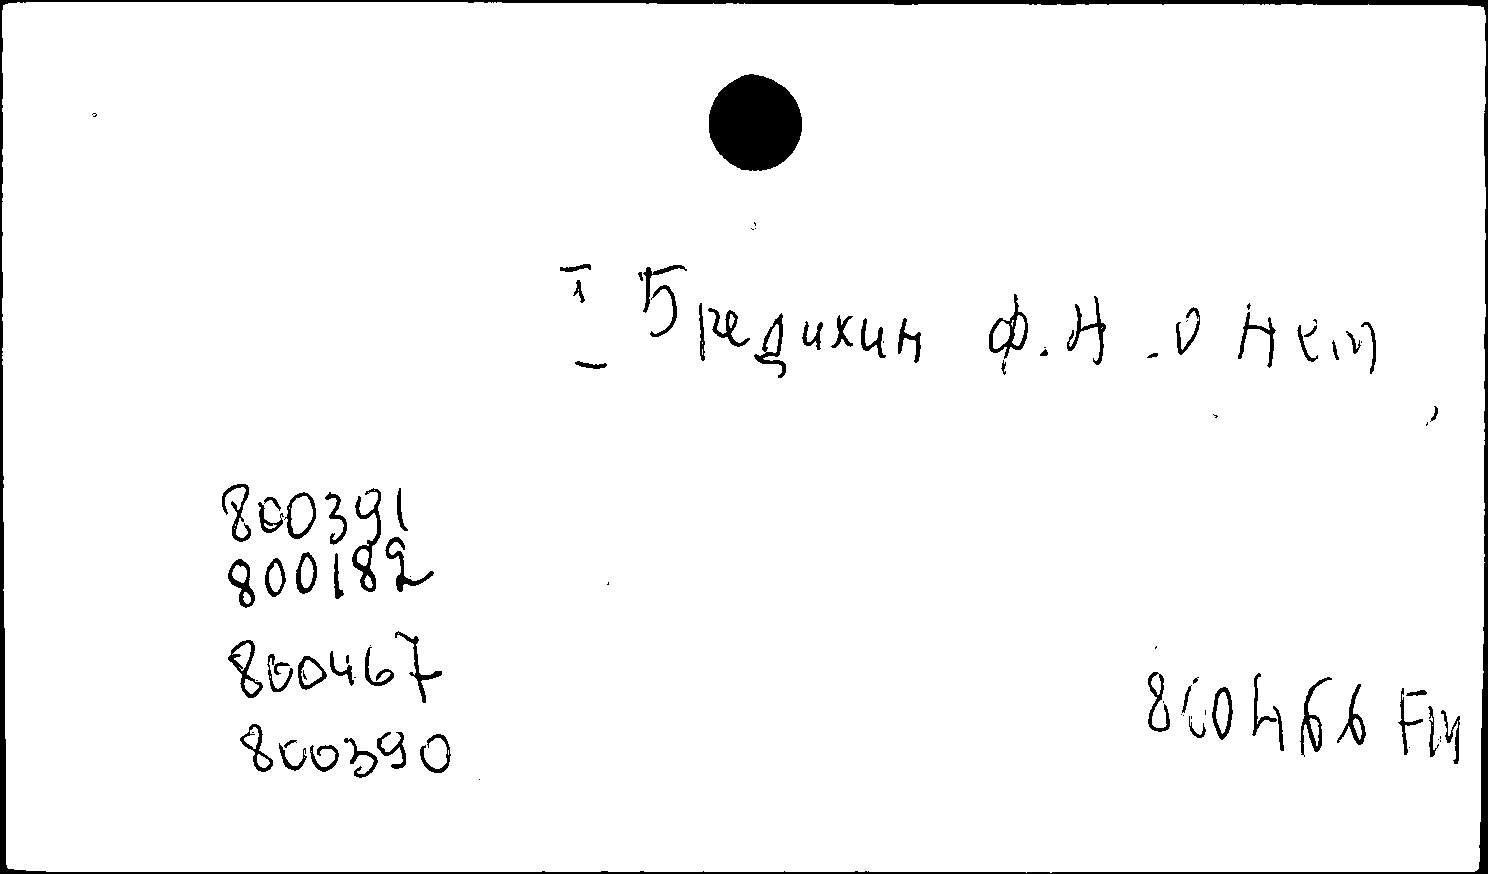 I Бредихин Ф.А. О нем
800391
800182
800467
800390
800466 Fm